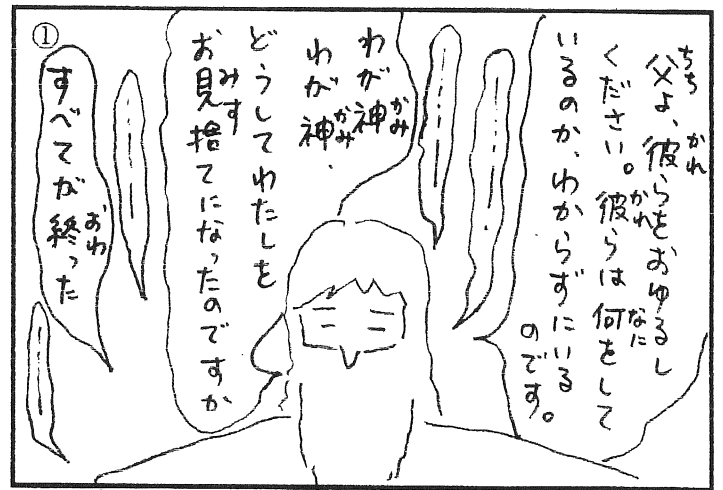 ①
父よ、彼らをおゆるし
ください。彼らは何をして
いるのか、わからずにいる
のです。
わが神
わが神、
どうしてわたしを
お見捨てになったのですか
すべてが終った